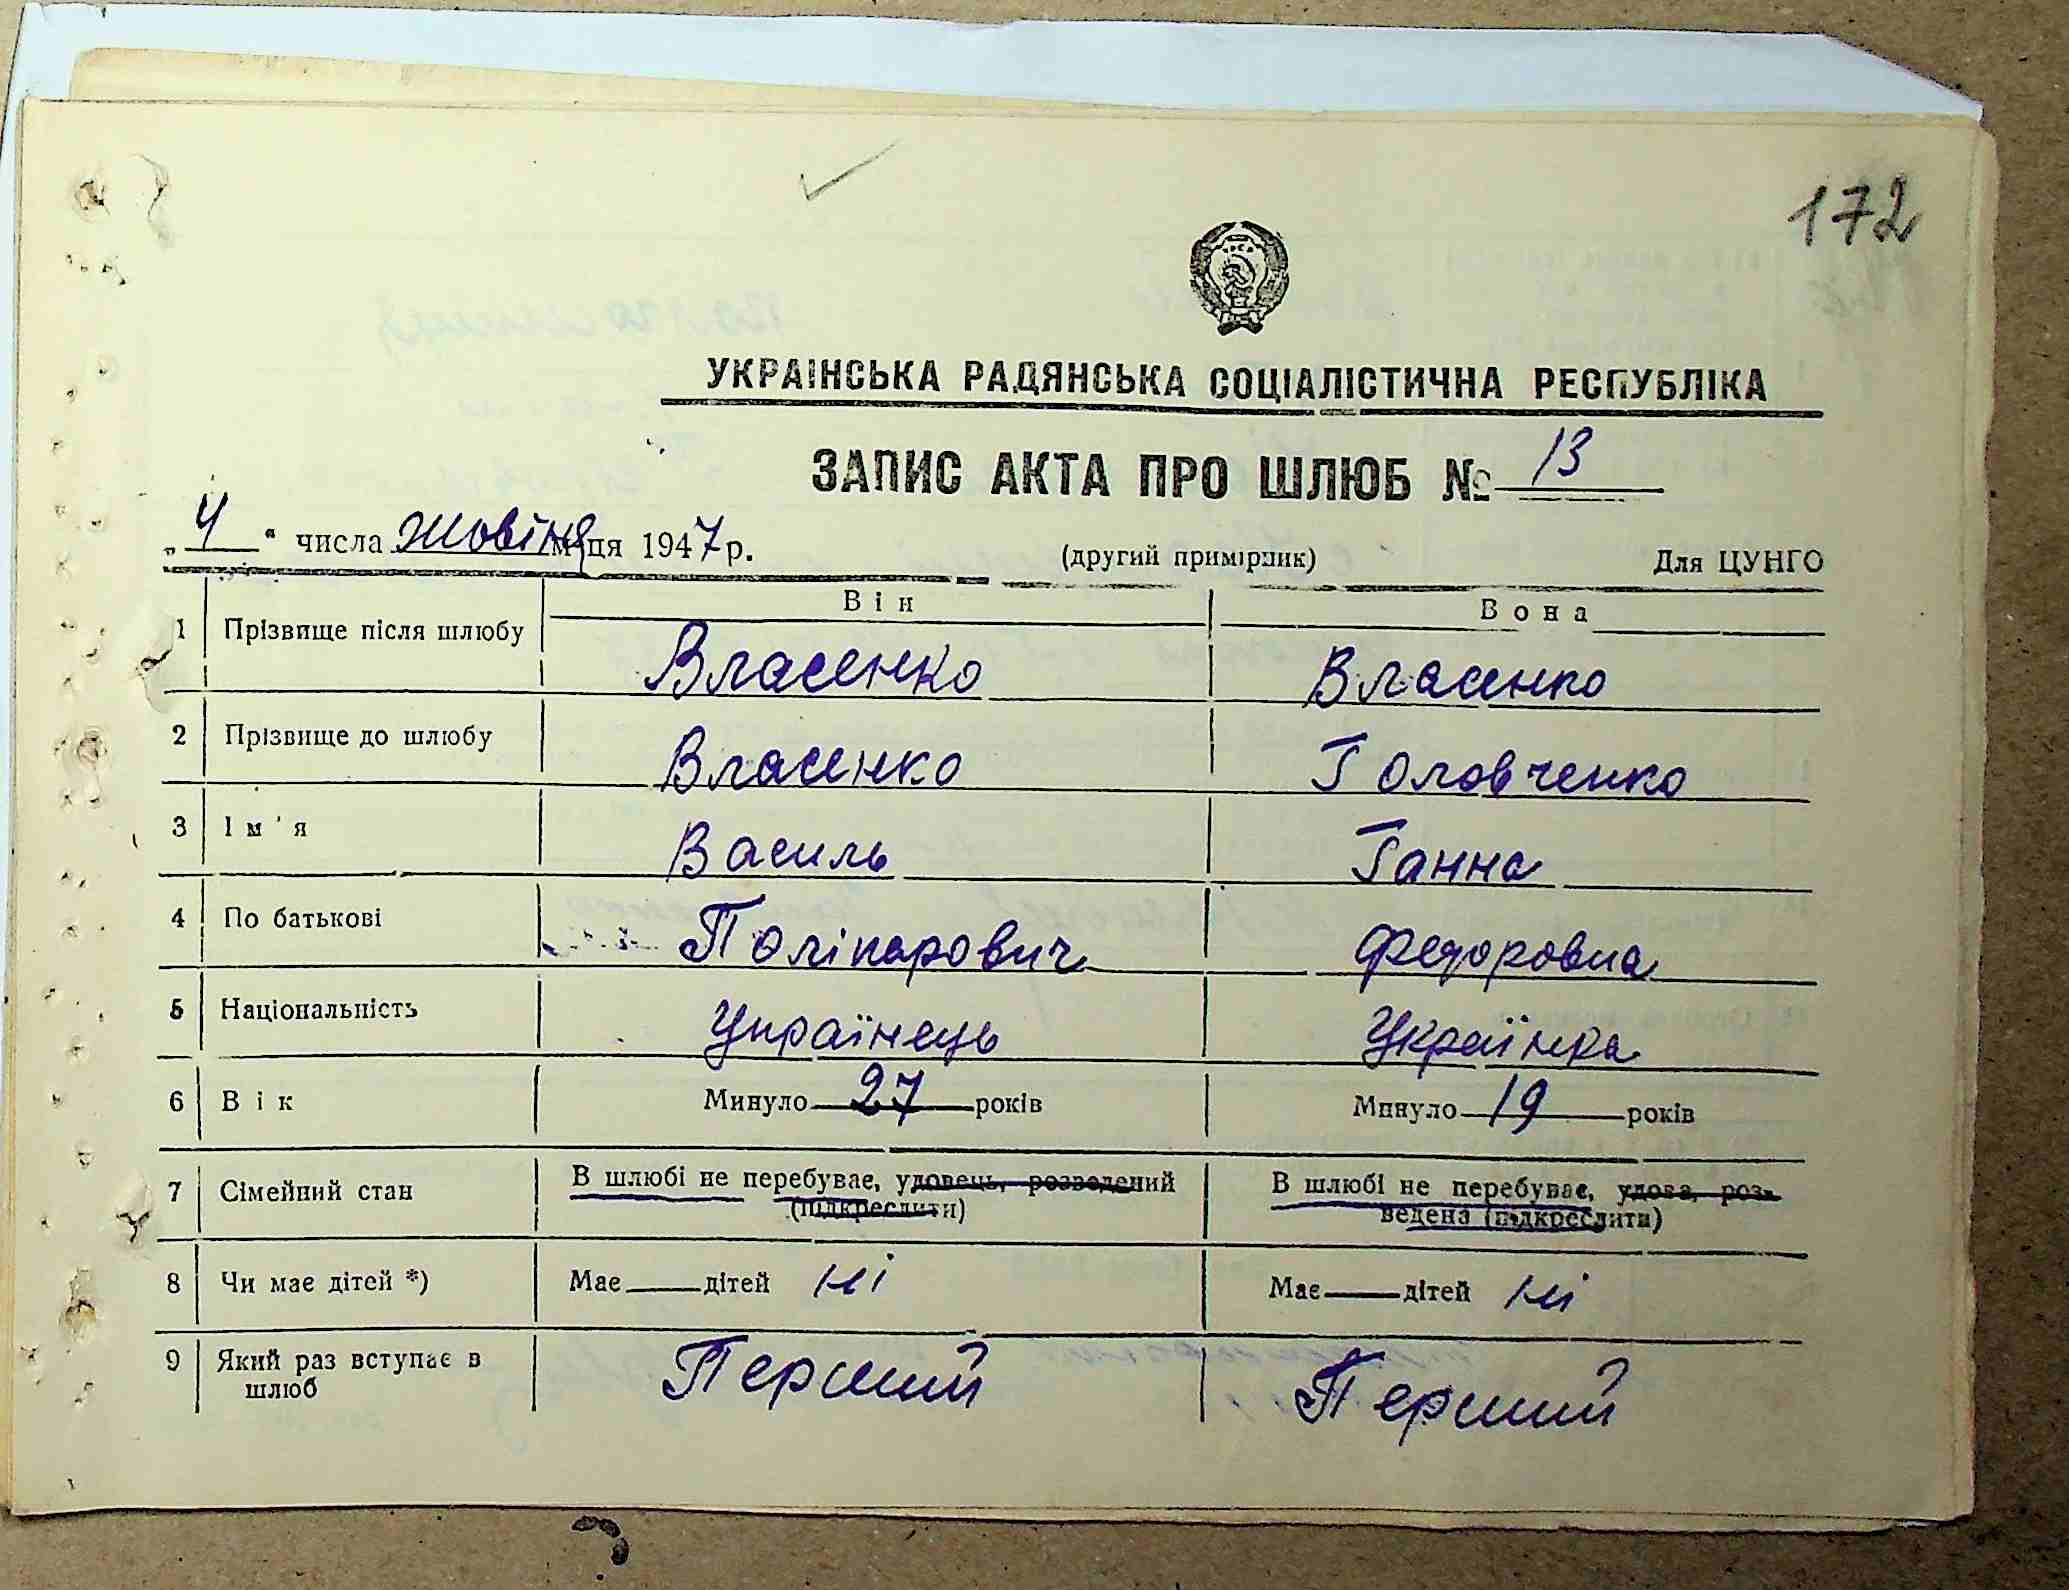 172
УКРАЇНСЬКА РАДЯНСЬКА СОЦІАЛІСТИЧНА РЕСПУБЛІКА
ЗАПИС АКТА ПРО ШЛЮБ № 13
„4“ числа жовтня м-ця 1947 р. (другий примірник) Для ЦУНГО
Він Вона
1 Прізвище після шлюбу Власенко Власенко
2 Прізвище до шлюбу Власенко Головченко
3 Ім'я Василь Ганна
4 По батькові Полікарович Федоровна
5 Національність Українець Українка
6 Вік Минуло 27 років Минуло 19 років
7 Сімейний стан В шлюбі не перебуває, удовець, розведений (підкреслити) В шлюбі не перебуває, удова, розведена (підкреслити)
8 Чи має дітей *) Має — дітей ні Має — дітей ні
9 Який раз вступає в шлюб Перший Перший